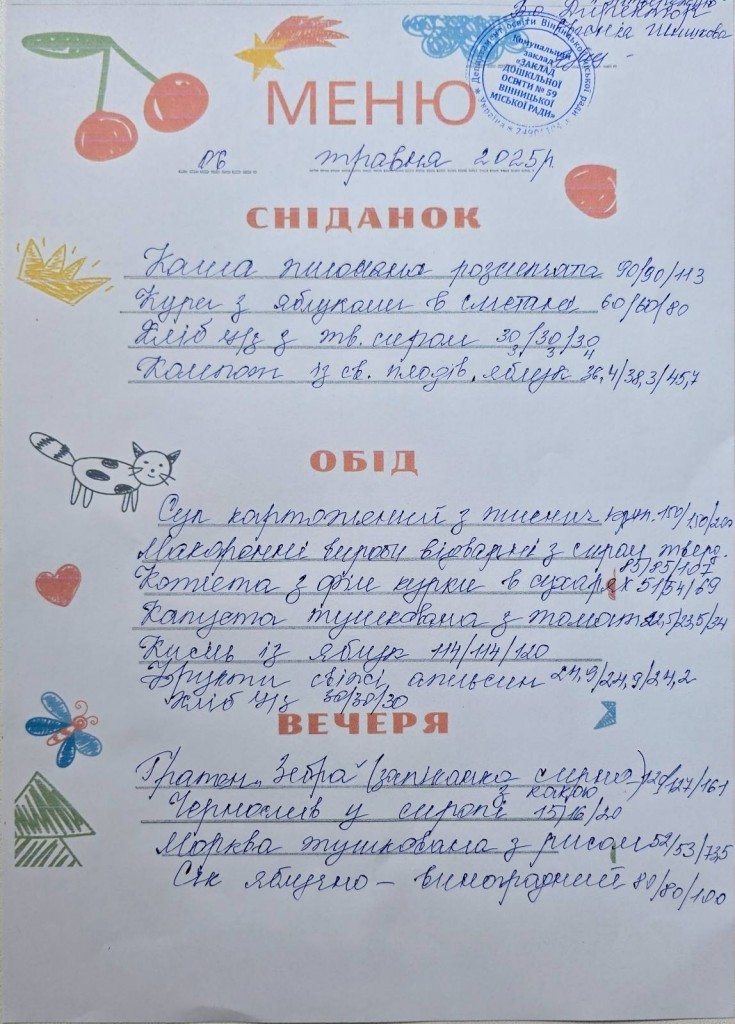 В.о Директор
МЕНЮ
Департамент освіти Вінницької міської ради
Комунальний
заклад
«ЗАКЛАД
ДОШКІЛЬНОЇ
ОСВІТИ № 59
ВІННИЦЬКОЇ
МІСЬКОЇ РАДИ»
Україна
06 травня 2025р.
СНІДАНОК
Каша пшоняна розсипчата 90/90/113
Кури з яблуками в сметані 60/60/80
Хліб ц/з з тв. сиром 30/30/30
3/3/4
Компот із св. плодів, яблук 36,4/38,3/45,7
ОБІД
Суп картопляний з пшенич. круп. 150/150/200
Макаронні вироби відварні з сиром тверд.
85/85/107
Котлета з філе курки в сухарях 51/54/69
Капуста тушкована з томатом 22,5/23,5/34
Кисіль із яблук 114/114/120
Фрукти свіжі апельсин 24,9/24,9/24,2
Хліб ц/з 30/30/30
ВЕЧЕРЯ
Гратен „Зебра" (запіканка сирна) /127/161
з какао
Чорнослив у сиропі 15/16/20
Морква тушкована з рисом 52/53/73,5
Сік яблучно - виноградний 80/80/100